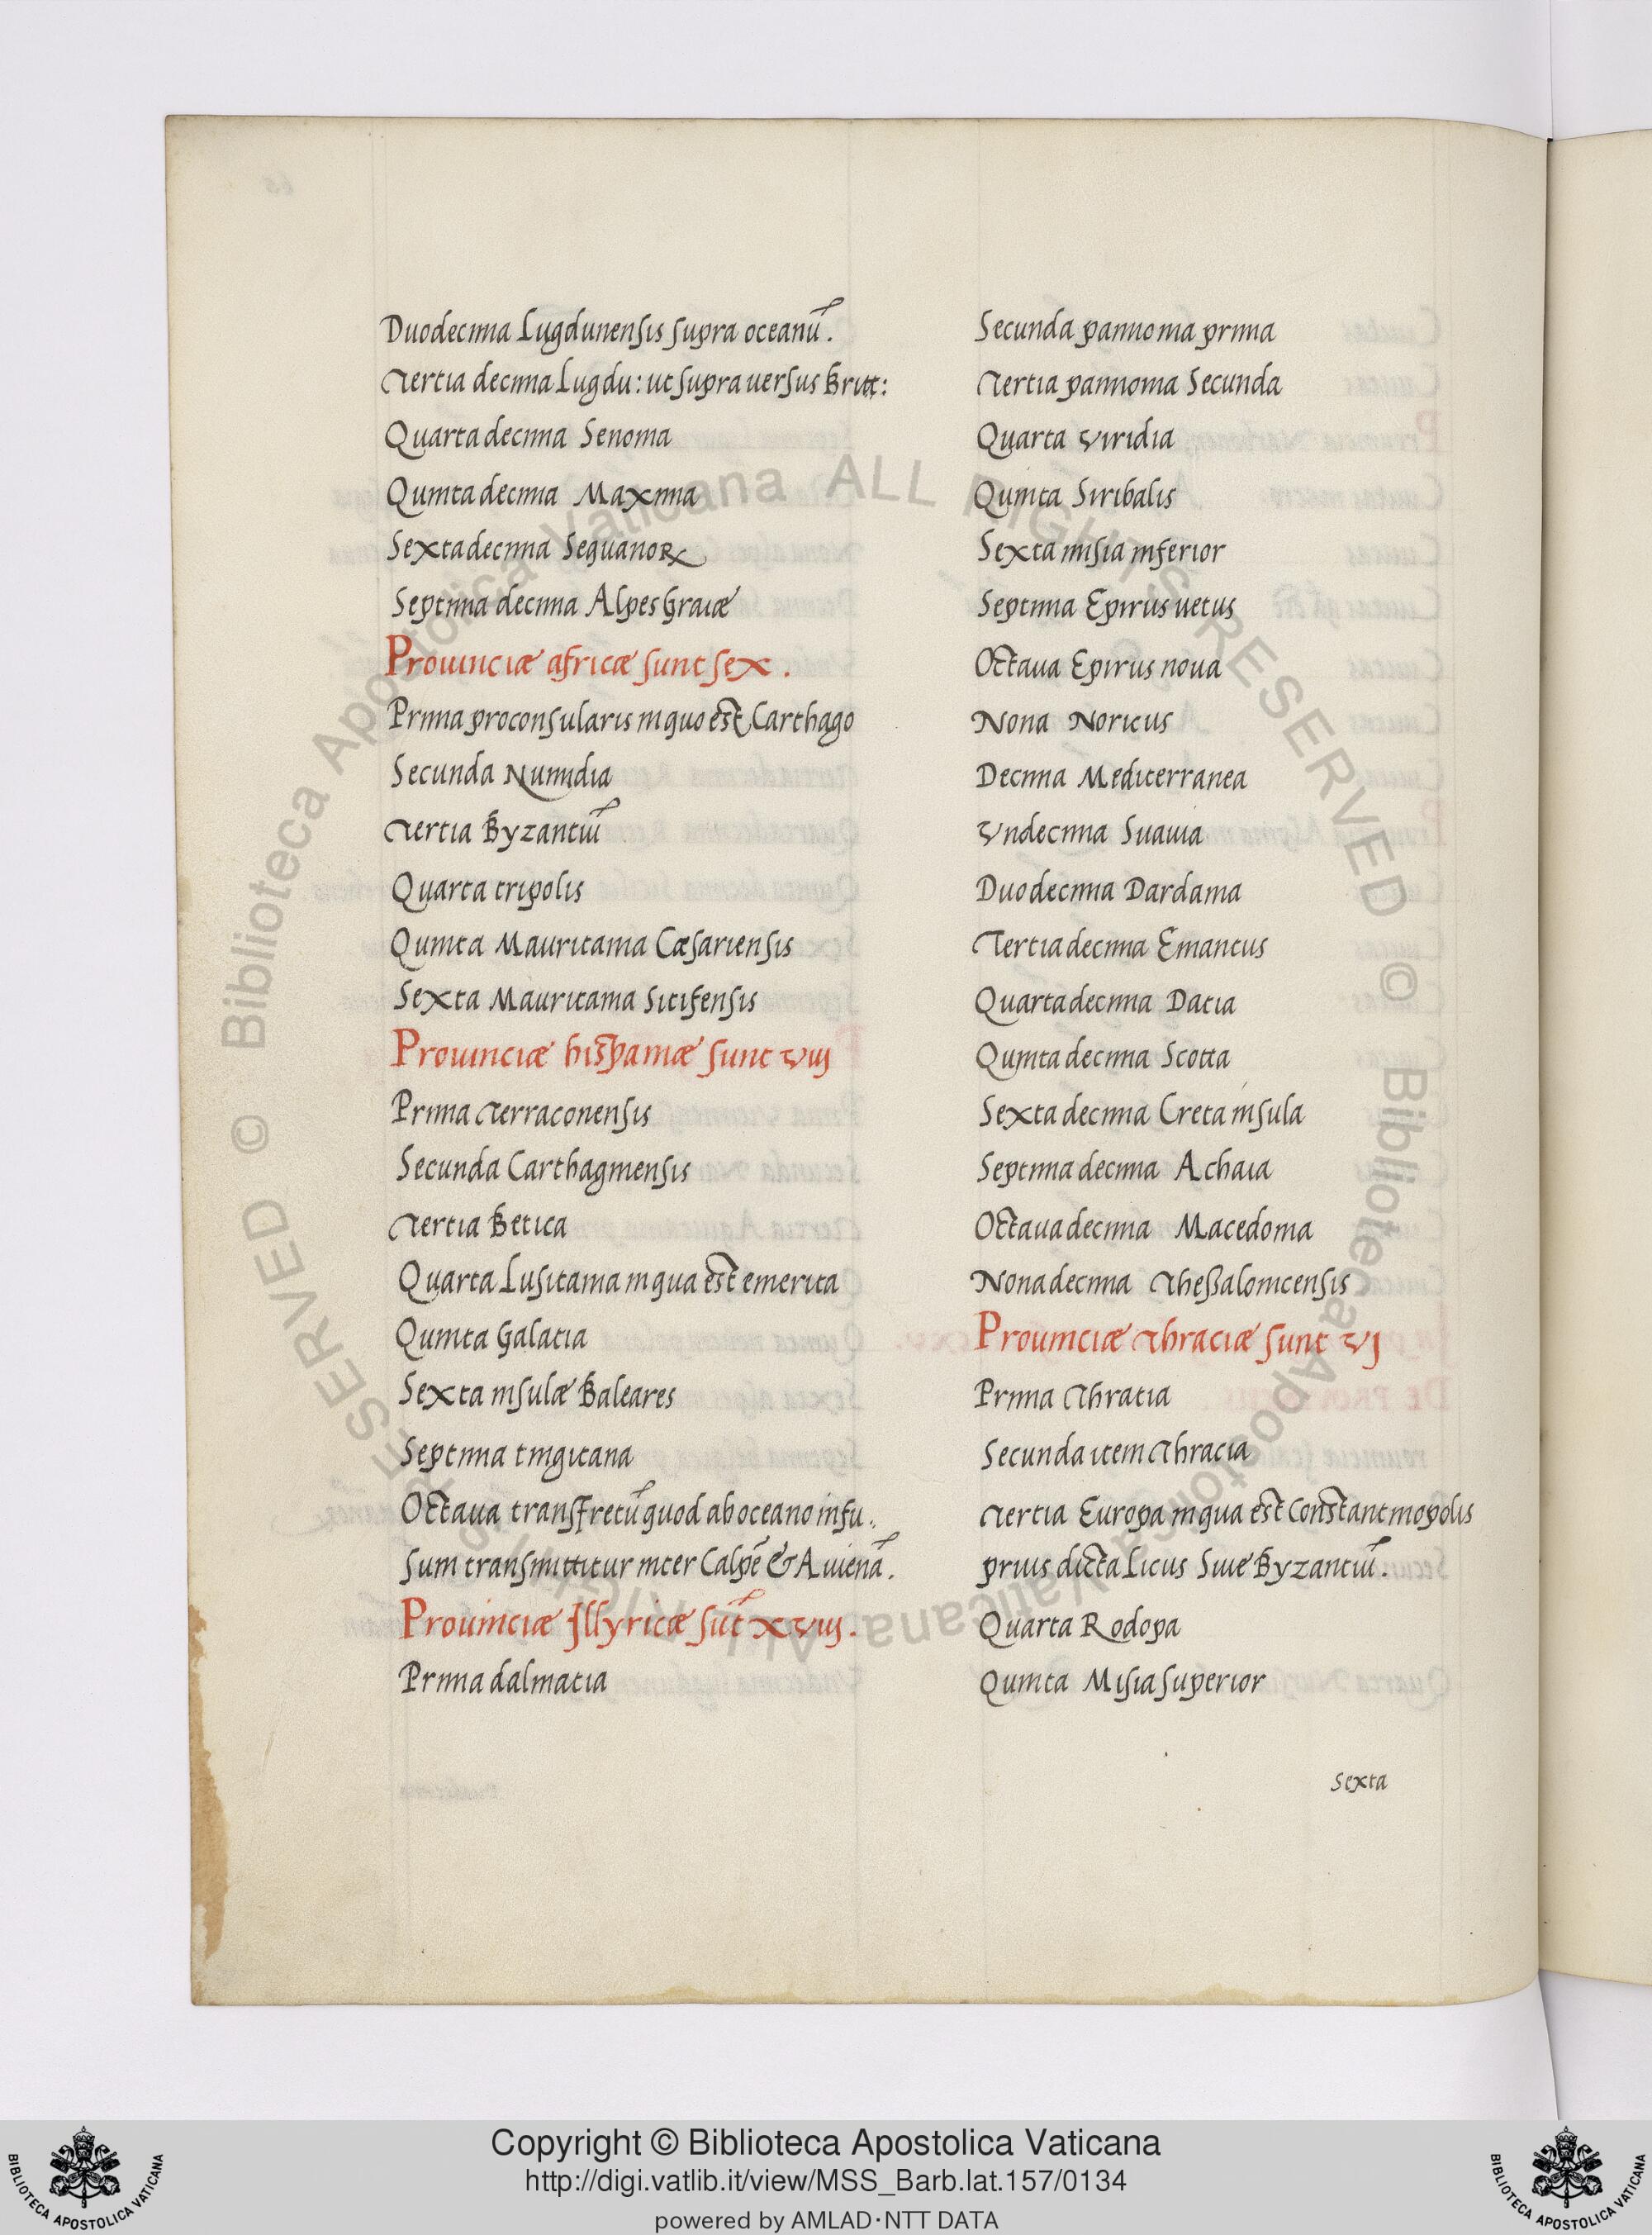 Duodecima Lugdunensis supra oceanū.
Tertia decima Lugdu: ut supra uersus Britt:
Quarta decima Senonia
Quinta decima Maxima
Sexta decima Sequanoꝝ
Septima decima Alpes Graiæ
Prouinciæ africæ sunt sex.
Prima proconsularis in quo est Carthago
Secunda Numidia
Tertia Byzantiū
Quarta tripolis
Quinta Mauritania Cæsariensis
Sexta Mauritania Sitifensis
Prouinciæ hispaniæ sunt viij
Prima Terraconensis
Secunda Carthaginensis
Tertia Betica
Quarta Lusitania in qua est emerita
Quinta Galatia
Sexta insulæ Baleares
Septima tingitana
Octaua transfretū quod ab oceano infu.
sum transmittitur inter Calpē & Auienā.
Prouinciæ Illyricæ sūt xviij.
Prima dalmatia
Secunda pannonia prima
Tertia pannonia Secunda
Quarta Viridia
Quinta Siribalis
Sexta misia inferior
Septima Epirus uetus
Octaua Epirus noua
Nona Noricus
Decima Mediterranea
Vndecima Suauia
Duodecima Dardania
Tertia decima Emantus
Quarta decima Datia
Quinta decima Scotta
Sexta decima Creta insula
Septima decima Achaia
Octaua decima Macedonia
Nona decima Thessalonicensis
Prouinciæ Thraciæ sunt vj
Prima Thratia
Secunda item Thracia
Tertia Europa in qua est Constantinopolis
prius dicta Licus Siue Byzantiū.
Quarta Rodopa
Quinta Misia superior
Sexta
© Biblioteca Apostolica Vaticana ALL RIGHTS RESERVED © Biblioteca Apostolica Vaticana ALL RIGHTS RESERVED
Copyright © Biblioteca Apostolica Vaticana
http://digi.vatlib.it/view/MSS_Barb.lat.157/0134
powered by AMLAD·NTT DATA
BIBLIOTECA APOSTOLICA VATICANA
BIBLIOTECA APOSTOLICA VATICANA